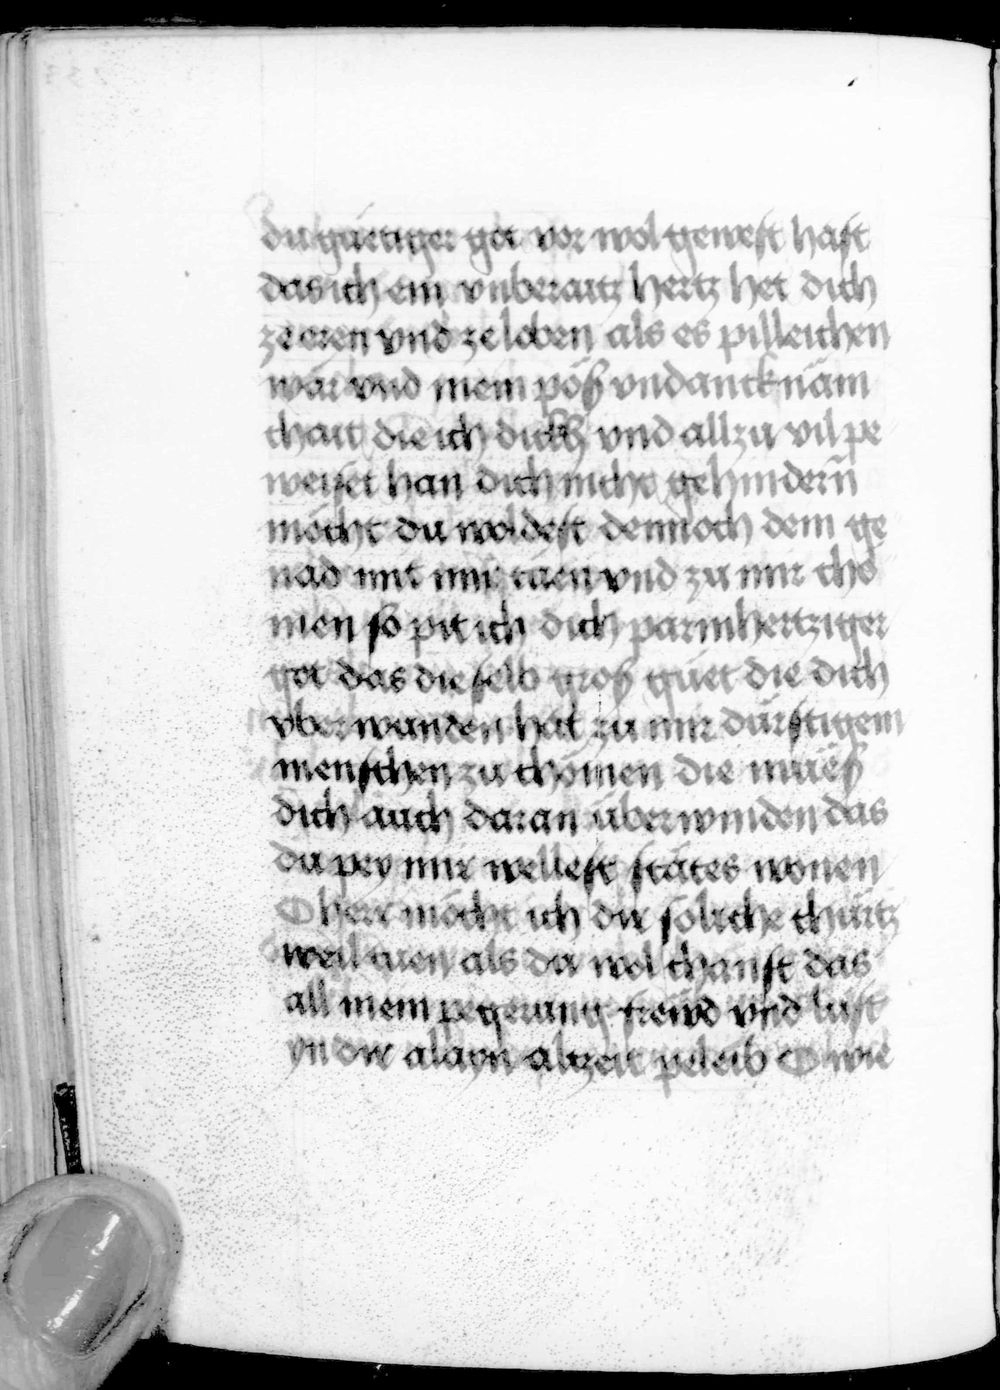 du güetiger got vor wol gewest hast
das ich ein vnberaitz hertz het dich
ze eren vnd ze loben als es pilleichen
wär vnd mein pöß vndancknäm
chait die ich dickh vnd all zu vil pe
weiset han dich nicht gehindern̄
möcht du woldest dennoch dein ge
nad mit mir tuen vnd zu mir cho
men so pit ich dich parmhertziger
got das die selb groß güet die dich
vber wunden hat zu mir dürftigem
menschen zu chömen die müeß
dich auch daran überwinden das
du pey mir wellest stätes wonen
O herr möcht ich dir soliche churtz
weil tuen als du wol chanst das
all mein pegerung frewd vnd lust
yn dir alayn altzeit peleib O wie